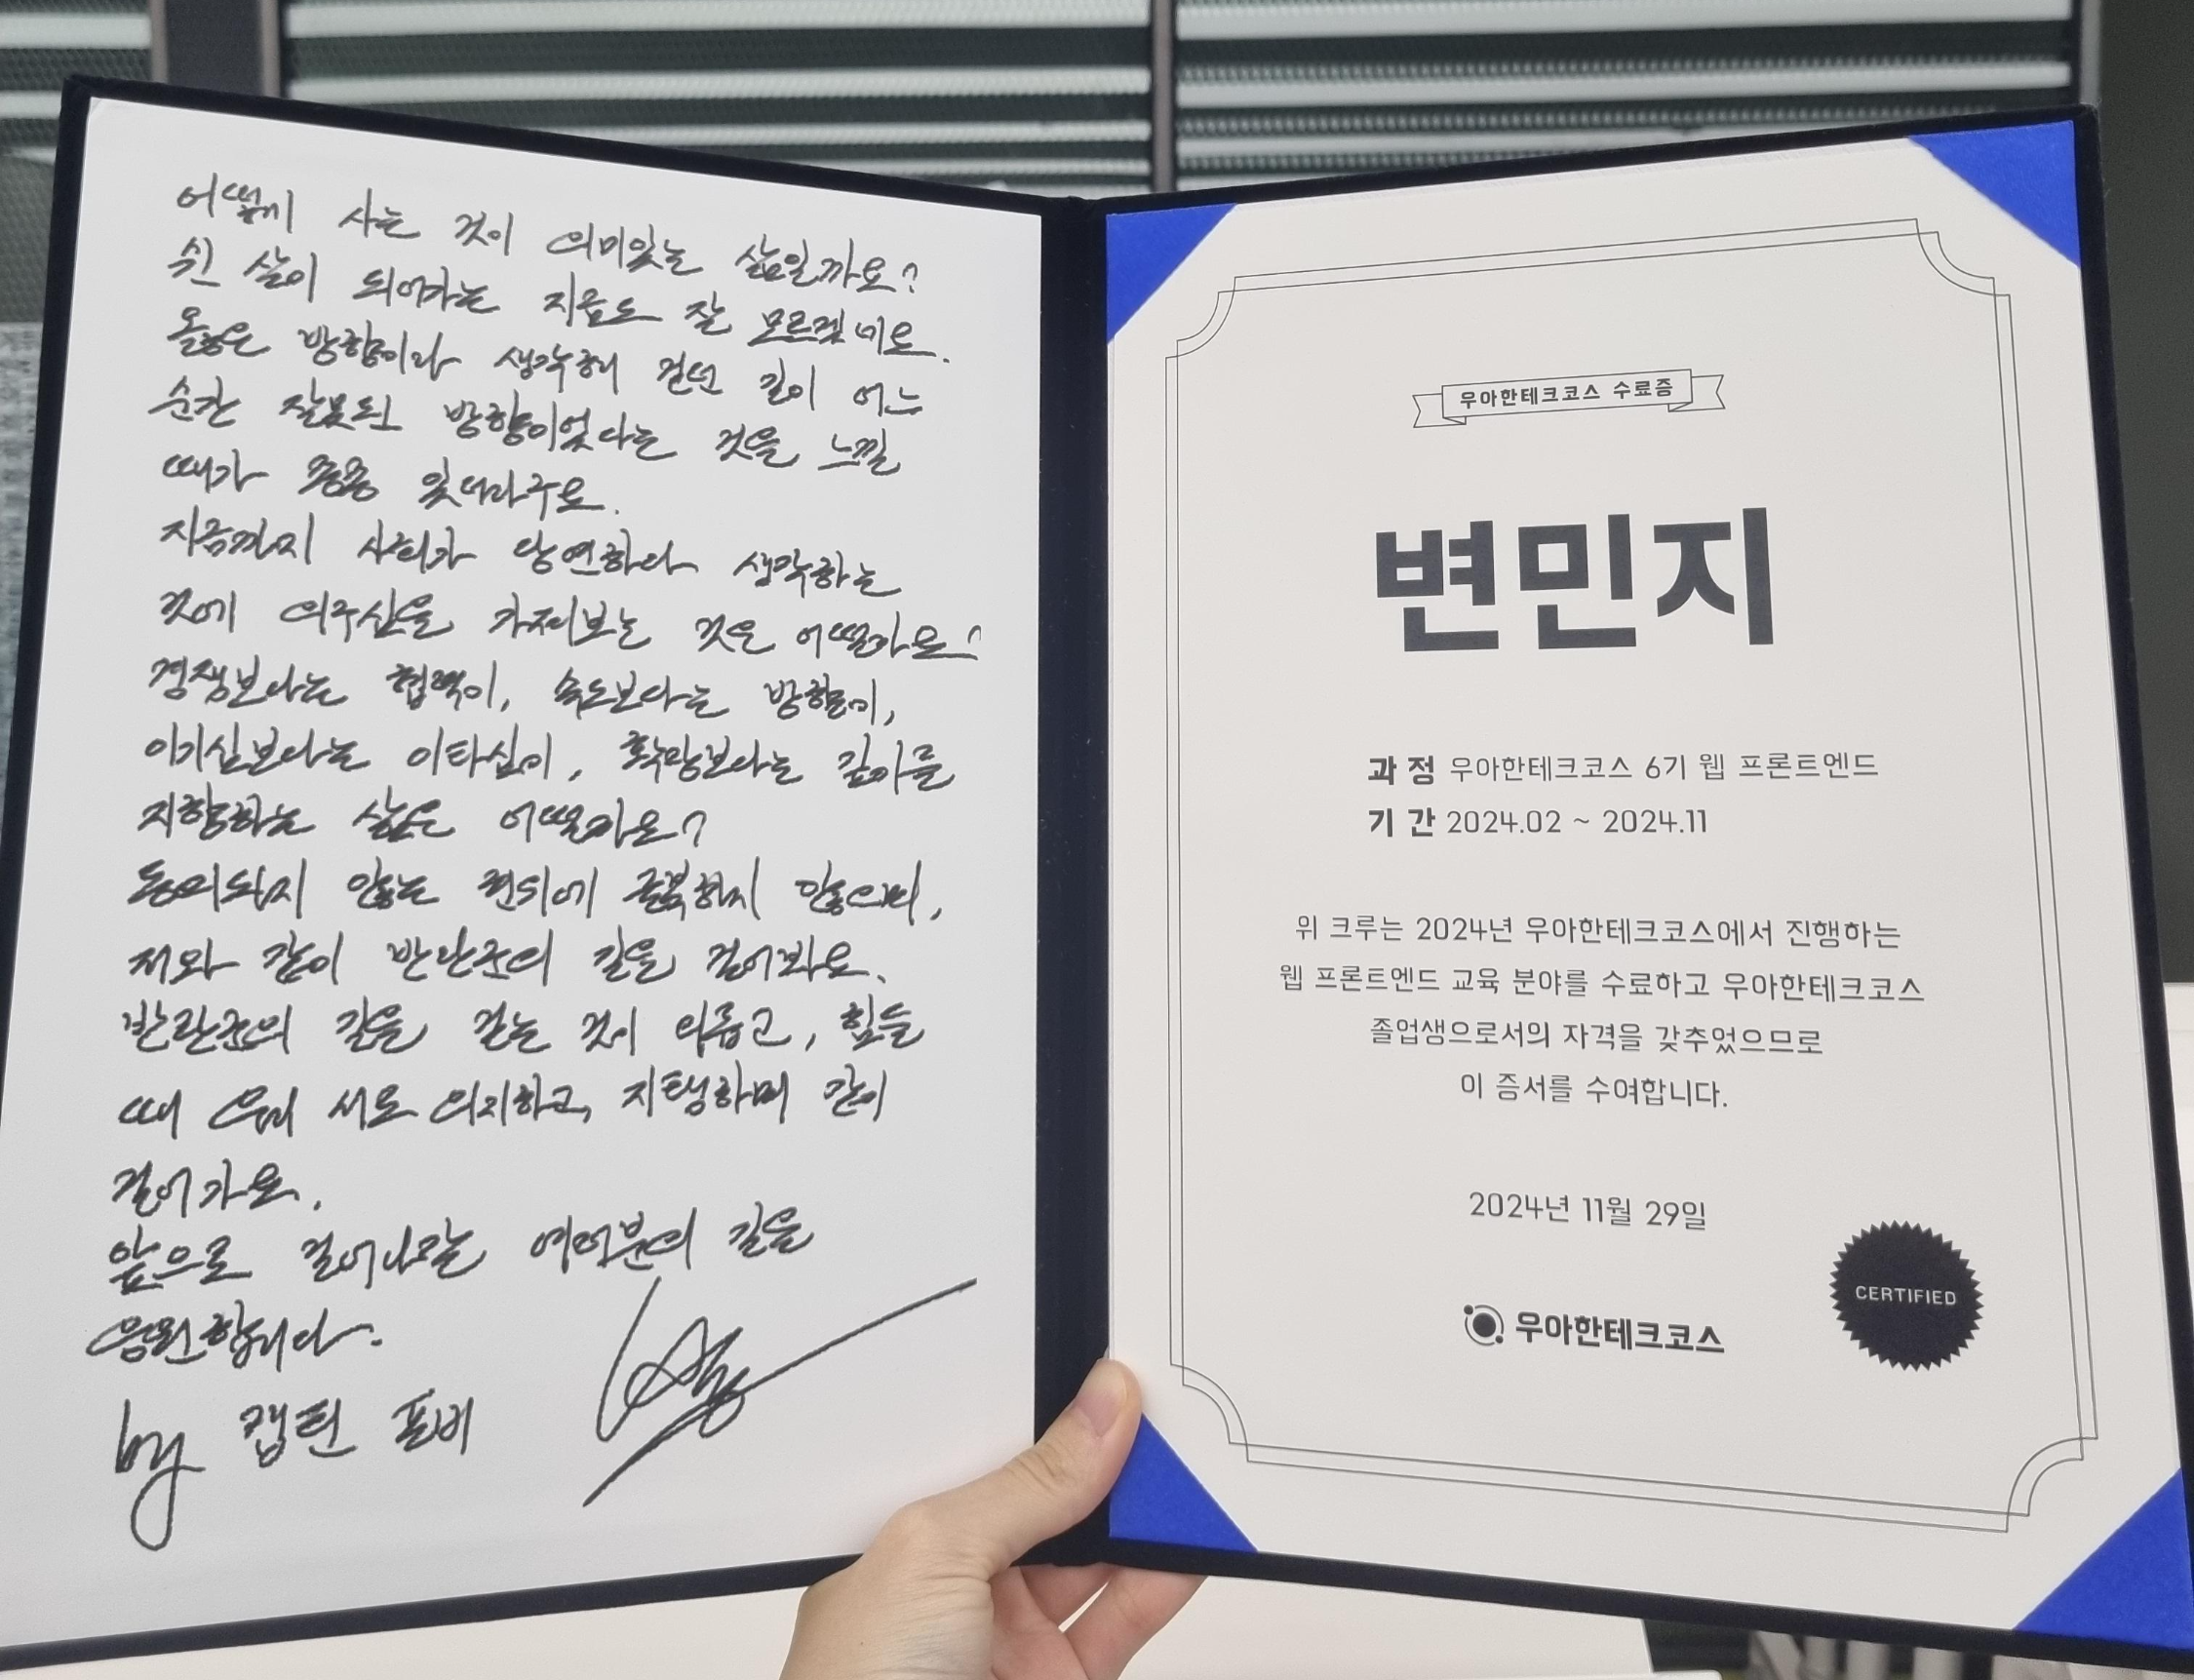 어떻게 사는 것이 의미있는 삶일까요?
쉰 살이 되어가는 지금도 잘 모르겠네요.
옳은 방향이라 생각해 걷던 길이 어느
순간 잘못된 방향이었다는 것을 느낄
때가 종종 있더라구요.
지금까지 사회가 당연하다 생각하는
것에 의구심을 가져보는 것은 어떨까요?
경쟁보다는 협력이, 속도보다는 방향이,
이기심보다는 이타심이, 확장보다는 깊이를
지향하는 삶은 어떨까요?
동의되지 않는 권위에 굴복하지 않으며,
저와 같이 반란군의 길을 걸어봐요.
반란군의 길을 걷는 것이 외롭고, 힘들
때 우리 서로 의지하고, 지탱하며 같이
걸어가요.
앞으로 걸어나갈 여러분의 길을
응원합니다.
by 캡틴 포비
우아한테크코스 수료증
변민지
과 정 우아한테크코스 6기 웹 프론트엔드
기 간 2024.02 ~ 2024.11
위 크루는 2024년 우아한테크코스에서 진행하는
웹 프론트엔드 교육 분야를 수료하고 우아한테크코스
졸업생으로서의 자격을 갖추었으므로
이 증서를 수여합니다.
2024년 11월 29일
우아한테크코스
CERTIFIED